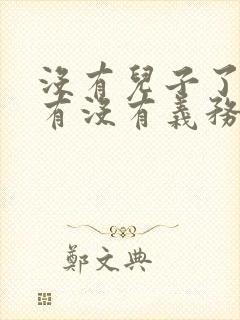 沒有兒子了
有沒有義務
鄭文典